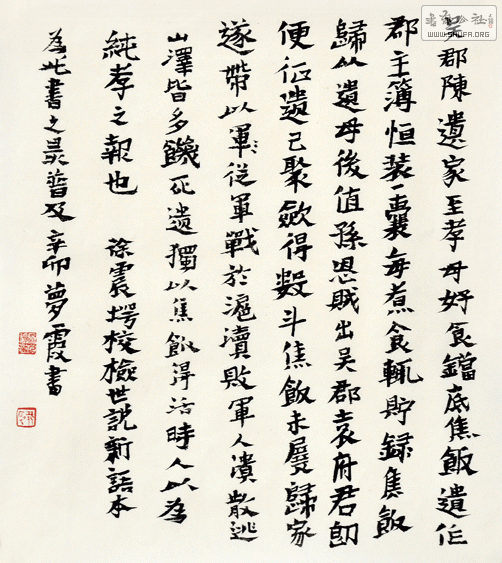 吴郡陳遺家至孝母好食鐺底焦飯遺作
郡主簿恒装一囊每煮食輒貯録焦飯
歸以遺母後值孫恩賊出吴郡袁府君即
便征遺已聚斂得數斗焦飯未展歸家
遂帶以軍從軍戰於滬瀆敗軍人潰散逃
山澤皆多饑死遺獨以焦飯得活時人以為
純孝之報也 徐震堮校檢世説新語本
為此書之冀普及 辛卯夢霞書
WWW.SHUFA.ORG